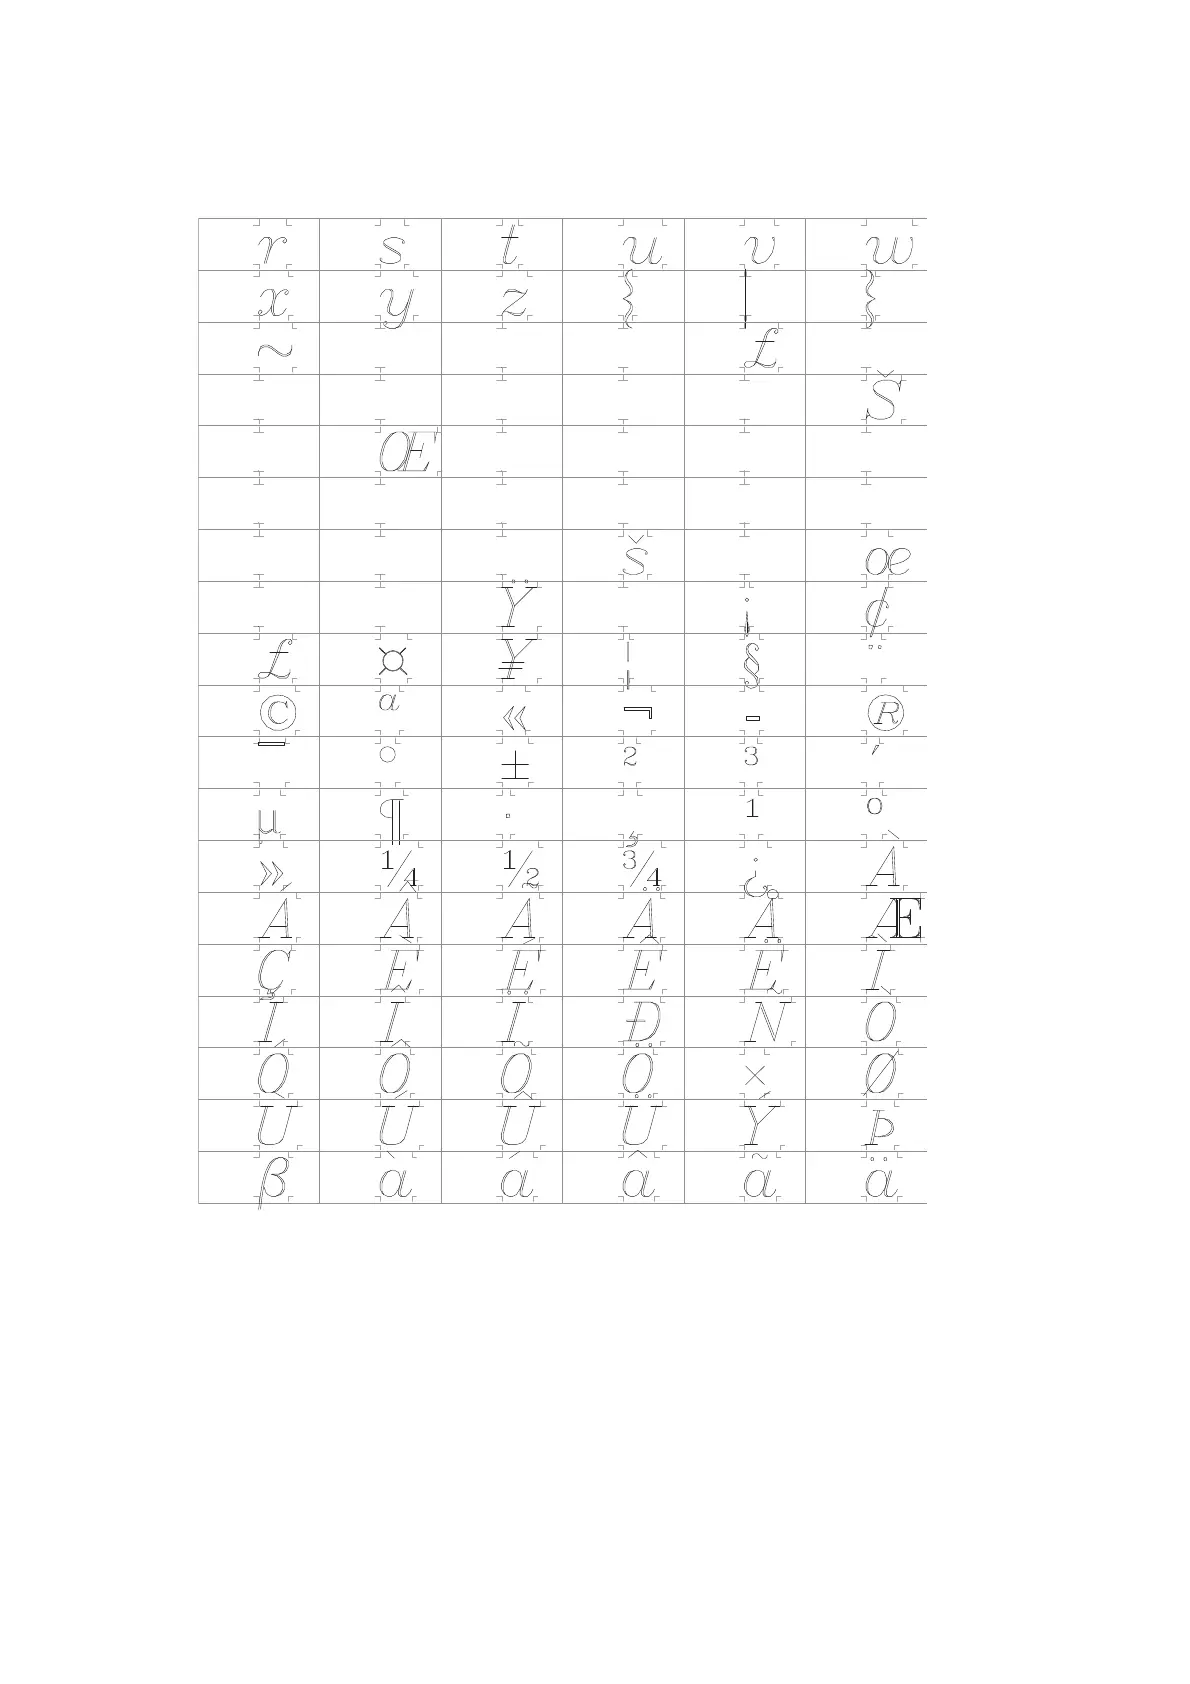 r s t u v w
x y z { | }
~ £
Š
Œ
š œ
Ÿ ¡ ¢
£ ¤ ¥ ¦ § ¨
© ª « ¬ - ®
¯ ° ± ² ³ ´
µ ¶ · ¸ ¹ º
» ¼ ½ ¾ ¿ À
Á Â Ã Ä Å Æ
Ç È É Ê Ë Ì
Í Î Ï Ð Ñ Ò
Ó Ô Õ Ö × Ø
Ù Ú Û Ü Ý Þ
β à á â ã ä